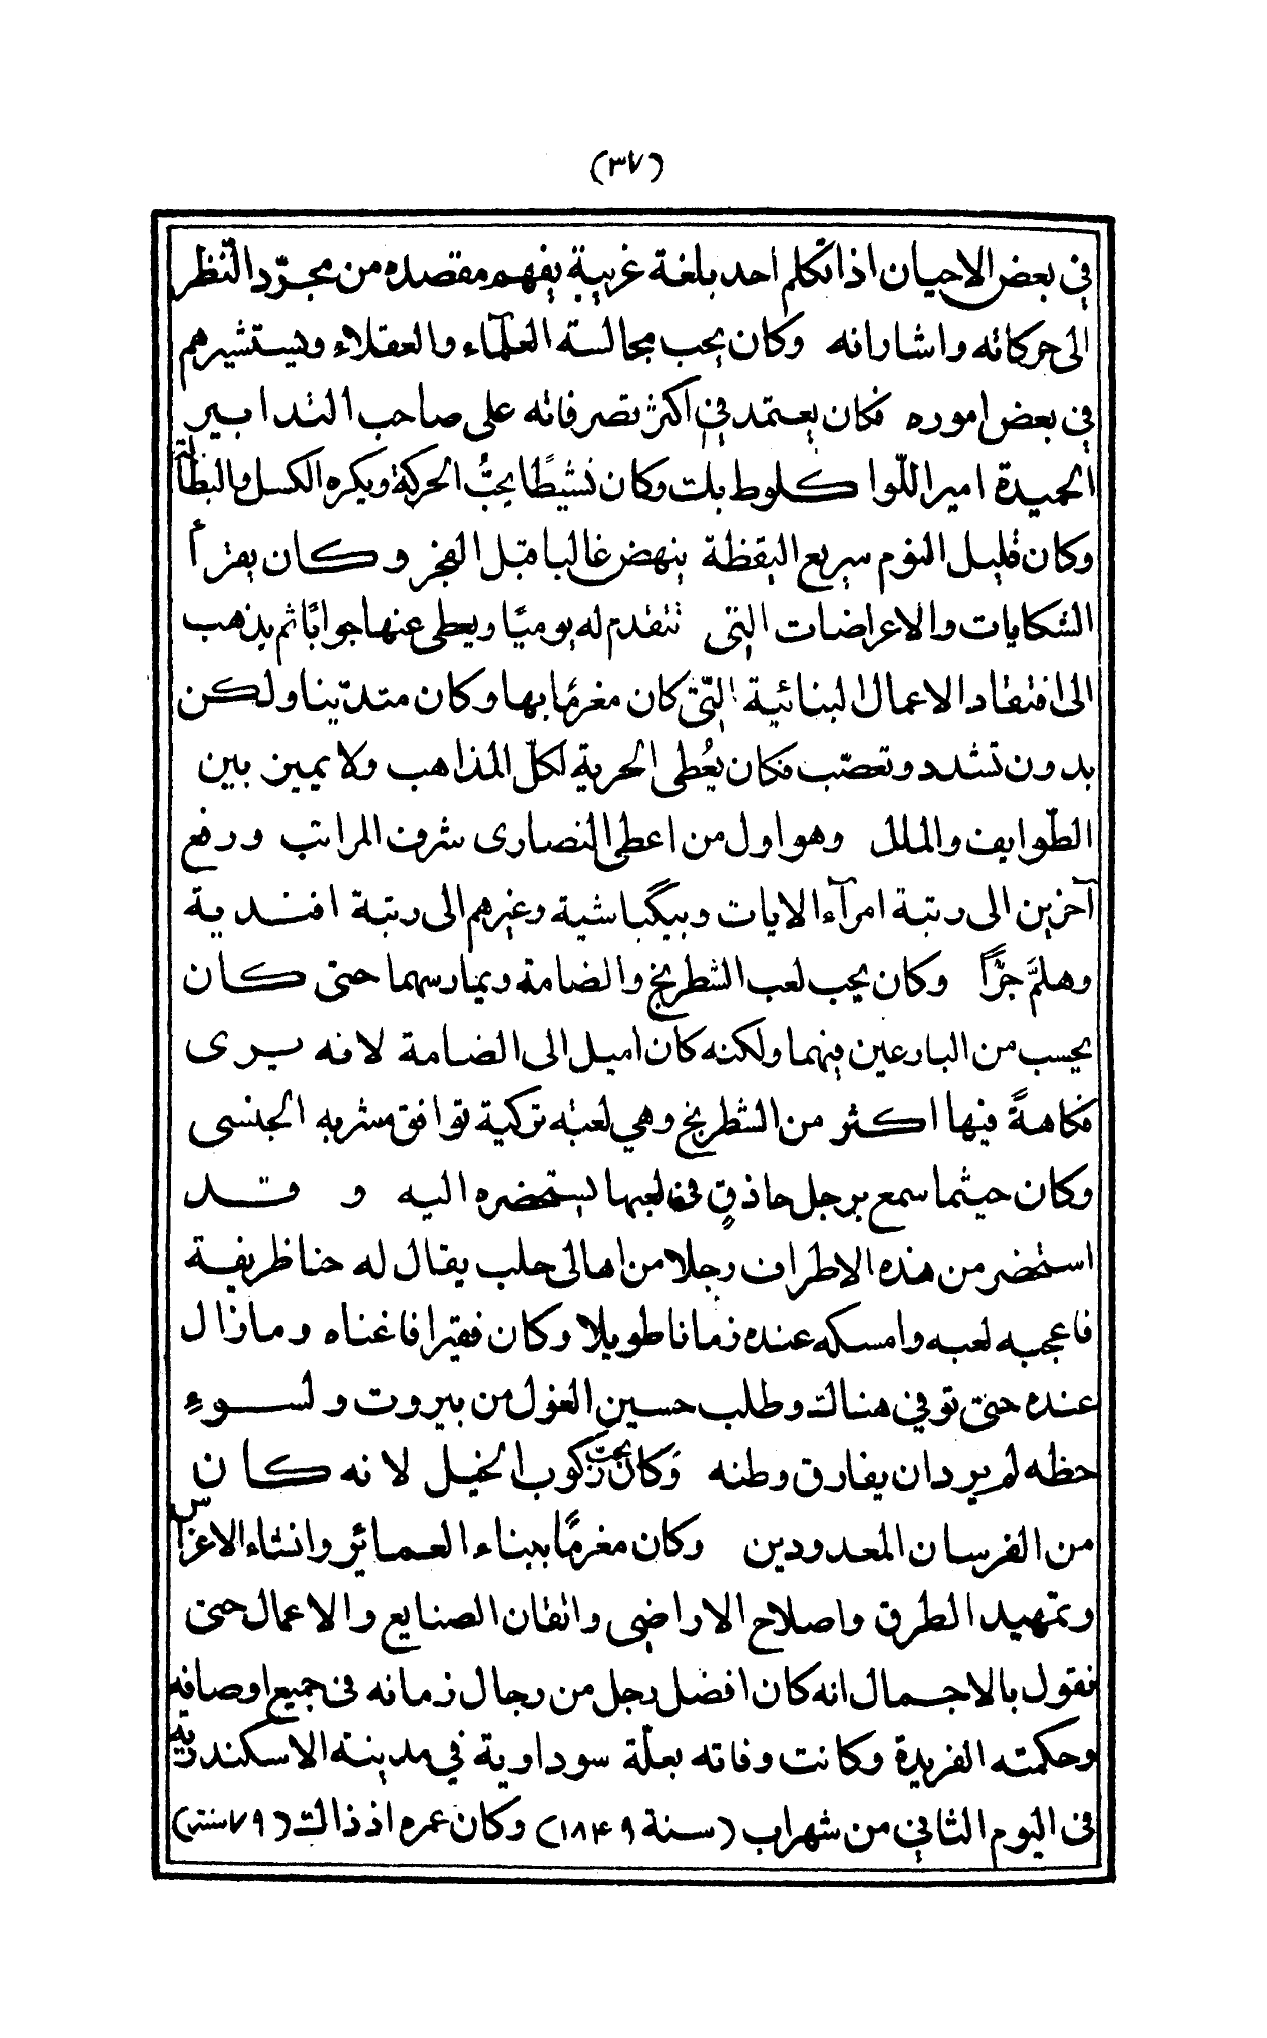 (٣٧)
في بعض الاحيان اذا تكلم احد بلغة غريبة يفهم مقصده من مجرّد النظر
الى حركاته واشاراته وكان يحب مجالسة العلمآء والعقلاء ويستشيرهم
في بعض اموره فكان يعتمد في اكثر تصرفاته على صاحب التدابير
الحميدة امير اللّوا كلوط بك وكان نشيطًا يحبُّ الحركة ويكره الكسل والبطالة
وكان قليل النوم سريع اليقظة ينهض غالبا قبل الفجر وكان يقرأ
الشكايات والاعراضات التي تتقدم له يوميًا ويعطى عنها جوابًا ثم يذهب
الى افتقاد الاعمال البنائية التّي كان مغرمًا بها وكان متديّنا ولكن
بدون تشدد وتعصّب فكان يُعطى الحرية لكلّ المذاهب ولا يميز بين
الطّوايف والملل وهو اول من اعطى النصارى شرف المراتب ورفع
آخرين الى رتبة امرآء الايات وبيگباشية وغيرهم الى رتبة افندية
وهلمَّ جرًّا وكان يحب لعب الشطرنج والضامة ويمارسهما حتى كان
يحسب من البارعين فيهما ولكنه كان اميل الى الضامة لانه يرى
فكاهةً فيها اكثر من الشطرنج وهي لعبة تركية توافق مشربه الجنسى
وكان حيثما سمع برجل حاذقٍ في لعبها يستحضره اليه وقد
استحضر من هذه الاطراف رجلا من اهالى حلب يقال له حنا ظريفة
فاعجبه لعبه وامسكه عنده زمانا طويلا وكان فقيرا فاغناه ومازال
عنده حتى توفي هناك وطلب حسين الغول من بيروت ولسوءِ
حظه لم يرد ان يفارق وطنه وكان يحبّ ركوب الخيل لانه كان
من الفرسان المعدودين وكان مغرمًا ببناء العمائر وانشاء الاغراس
وتمهيد الطرق واصلاح الاراضى واتقان الصنايع والاعمال حتى
نقول بالاجمال انه كان افضل رجل من رجال زمانه في جميع اوصافه
وحكمته الفريدة وكانت وفاته بعلّة سوداوية في مدينة الاسكندرية
في اليوم الثاني من شهر اب (سنة ١٨٤٩) وكان عمره اذ ذاك (٧٩ سنة)